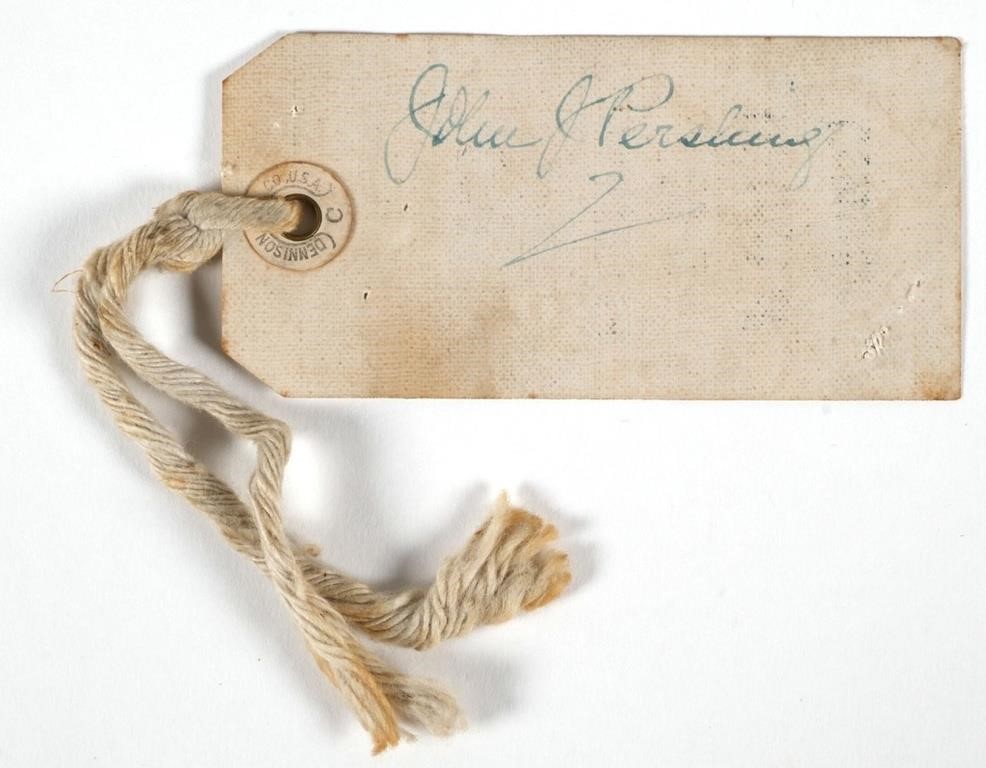 John J Pershing
DENNISON C CO., U.S.A.